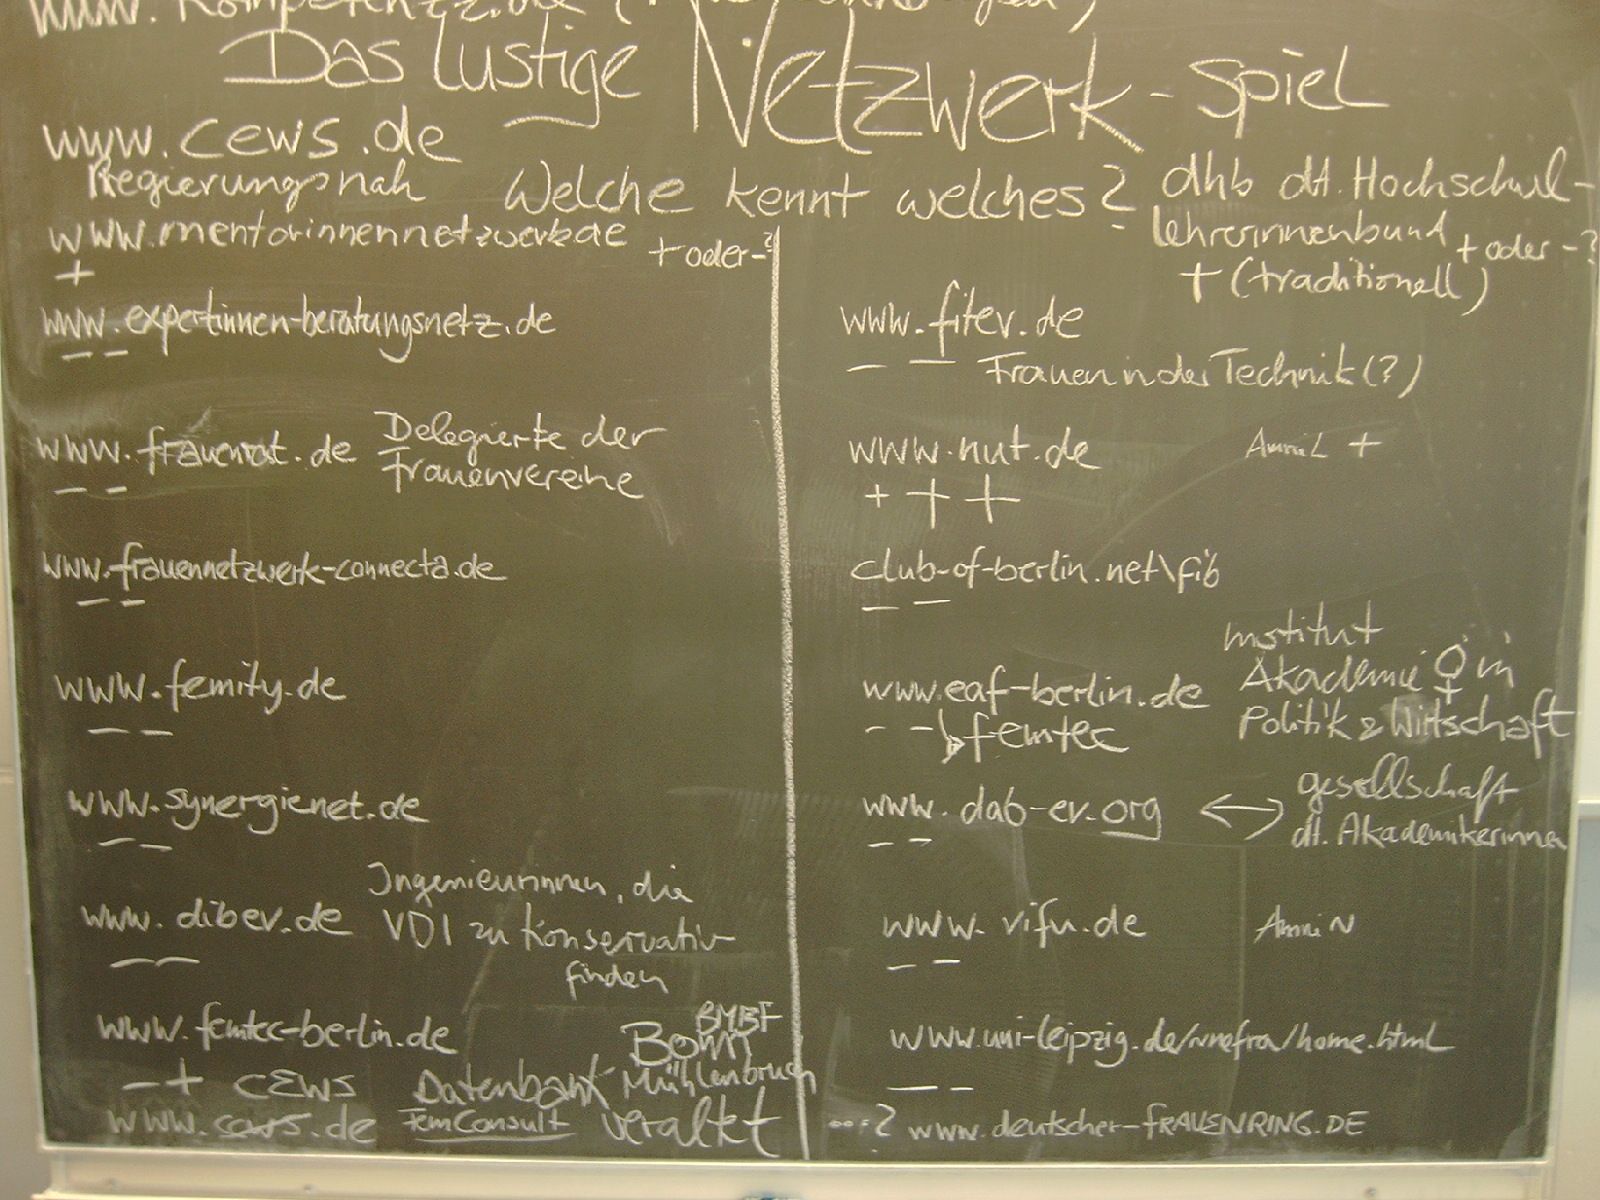 www.Kompetenzz.de
Das lustige Netzwerk-Spiel
www.cews.de
Regierungsnah
Welche kennt welches?
www.mentorinnennetzwerk.de + oder -?
+
www.expertinnen-beratungsnetz.de
— —
www.frauenrat.de Delegierte der
Frauenvereine
— —
www.frauennetzwerk-connecta.de
— —
www.femity.de
— —
www.synergienet.de
— —
Ingenieurinnen, die
www.dibev.de VDI zu konservativ
finden
— —
www.femtec-berlin.de
BMBF
Bonn
— + CEWS Datenbank Mühlenbruch
www.cews.de FemConsult veraltet
dhb dt. Hochschul-
lehrerinnenbund + oder -?
+ (traditionell)
www.fitev.de
— — Frauen in der Technik (?)
www.nut.de +
+ + +
club-of-berlin.net\fib
— —
Institut
www.eaf-berlin.de Akademie ♀ in
Politik & Wirtschaft
— — femtec
www.dab-ev.org <—> gesellschaft
dt. Akademikerinnen
— —
www.vifu.de
— —
www.uni-leipzig.de/wnefra/home.html
— —
...? www.deutscher-FRAUENRING.DE